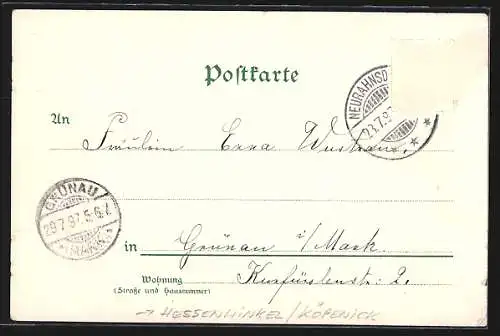 Postkarte
NEURAHNSD
29.7.97
An
Fräulein Erna
GRÜNAU
29.7.97. 5-6.N.
in Grünau i/Mark
Wohnung
(Straße und Hausnummer)
Kurfürstenstr: 2.
→ HESSENWINKEL/KÖPENICK